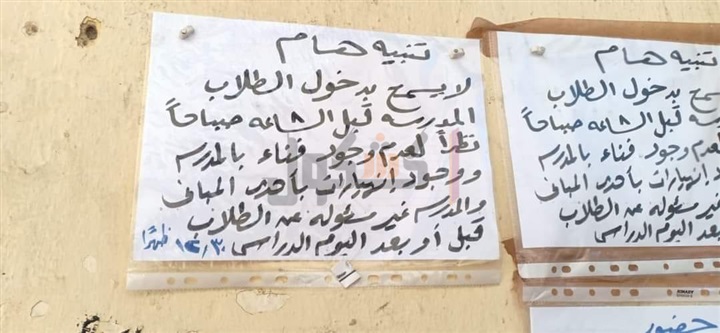 تنبيه هام
لا يسمح بدخول الطلاب
المدرسه قبل الساعه ٨ صباحاً
نظراً لعدم وجود فناء بالمدرسه
ووجود إنهيارات بأحدى المبانى
والمدرسه غير مسئوله عن الطلاب
قبل أو بعد اليوم الدراسى ١٢٫٣٠ ظهرًا
تنبيه هام
يسمح بدخول الطلاب
سه قبل الساعه ٨ صباحاً
لعدم وجود فناء بالمدرسه
د إنهيارات بأحدى المبانى
غير مسئوله عن الطلاب
بعد اليوم الدراسى
حضور